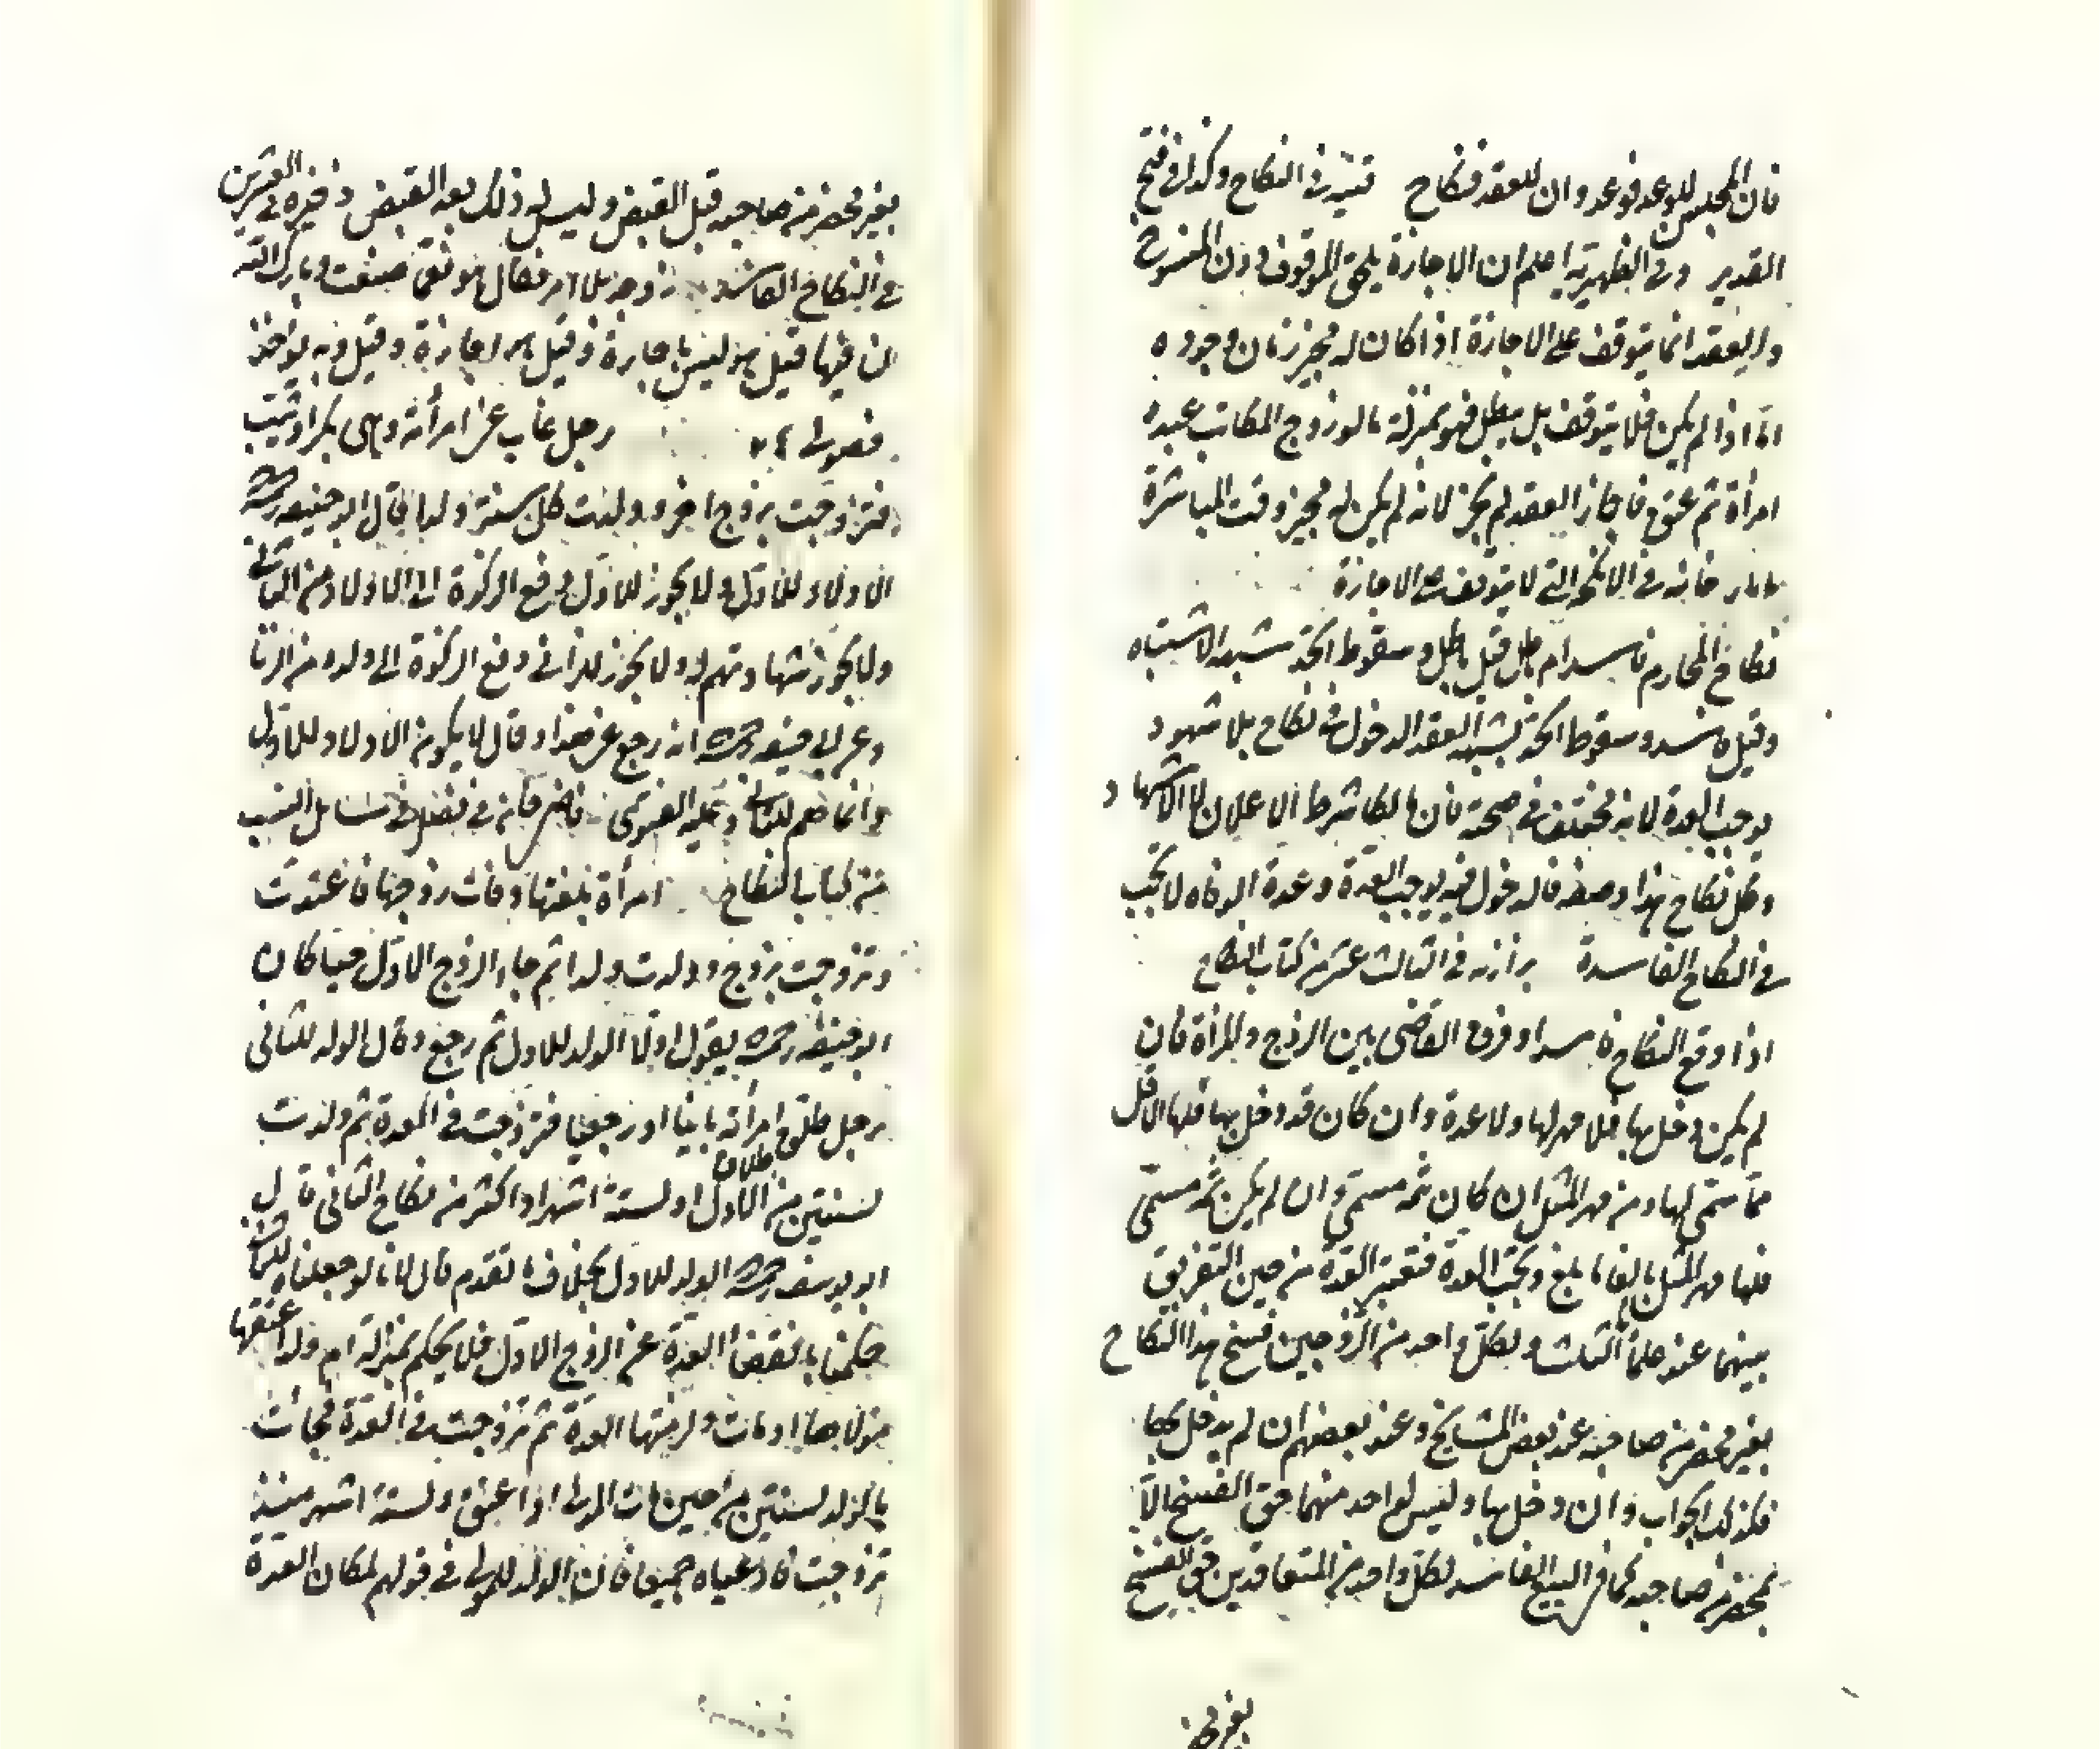 فان المجلس للوعد فوعد وان للعقد فنكاح قنيه في النكاح وكذا في فتح
القدير وفي الظهيرية اعلم ان الاجازة يلحق الموقوف دون المفسوخ
والعقد انما يتوقف على الاجازة اذا كان له مجيز زمان وجوده
اما اذا لم يكن فلا يتوقف بل يبطل فهو بمنزلة ما لو زوج المكاتب عبده
امرأة ثم عتق فاجاز العقد لم يجز لانه لم يكن له مجيز وقت المباشرة
خانيه في الانكحة التي لا يتوقف على الاجازة
نكاح المحارم فاسد ام باطل قيل باطل وسقوط الحد لشبهة الاشتباه
وقيل فاسد وسقوط الحد لشبهة العقد الدخول في نكاح بلا شهود
يوجب العدة لانه مختلف في صحته فان مالكا شرط الاعلان لا الاشهاد
وكل نكاح هذا وصفه فالدخول فيه يوجب العدة وعدة الوفاه لا يجب
في النكاح الفاسدة بزازيه في الثالث عشر من كتاب النكاح
اذا وقع النكاح فاسدا وفرق القاضى بين الزوج والمرأة فان
لم يكن دخل بها فلا مهر لها ولا عدة وان كان قد دخل بها فلها الاقل
مما سمى لها ومن مهر المثل ان كان ثمه مسمى وان لم يكن ثمه مسمى
فلها مهر المثل بالغا ما بلغ وتجب العدة فتعتبر العدة من حين التفريق
بينهما عند علمائنا الثلث ولكل واحد من الزوجين فسخ هذا النكاح
بغير محضر من صاحبه عند بعض المشايخ وعند بعضهم ان لم يدخل بها
فكذلك الجواب وان دخل بها وليس لواحد منهما حق الفسخ الا
بمحضر من صاحبه كما في البيع الفاسد لكل واحد من المتعاقدين حق الفسخ
بغير محضر
بغير محضر من صاحبه قبل القبض وليس له ذلك بعد القبض ذخيره في العشرين
في النكاح الفاسد زوجه بلا امر فقال نعم صنعت وبارك الله
لن فيها قيل هو ليس باجازة وقيل اجازة وقيل وبه يؤخذ
فصولي رجل غاب عن امرأته وهى بكر او ثيب
فتزوجت بزوج اخر وولدت كل سنة ولدا قال ابو حنيفه رحمه
الاولاد للاول ولا يجوز للاول دفع الزكوة الى الاولاد من الثانى
ولا يجوز شهادتهم له ولا يجوز للزانى دفع الزكوة الى ولده من الزنا
وعن ابى حنيفه رحمه انه رجع عن هذا وقال لا يكون الاولاد للاول
وانما هم للثانى وعليه الفتوى قاضى خان في فصل في مسائل النسب
من كتاب النكاح امرأة بلغتها وفات زوجها فاعتدت
وتزوجت بزوج وولدت ولدا ثم جاء الزوج الاول حيا كان
ابو حنيفه رحمه يقول اولا الولد للاول ثم رجع وقال الولد للثانى
رجل طلق امرأته باينا او رجعيا فتزوجت في العدة ثم ولدت
لسنتين من طلاق الاول او لستة اشهر او اكثر من نكاح الثانى قال
ابو يوسف رحمه الولد للاول بخلاف ما تقدم قال لانا لو جعلناه للثانى
حكمنا بانقضاء العدة عن الزوج الاول فلا يحكم بمنزلة ام ولد اعتقها
مولاها او مات ولزمتها العدة ثم تزوجت في العدة فجاءت
بالولد لسنتين من حين مات المولى او اعتق ولستة اشهر منذ
تزوجت فادعياه جميعا فان الولد للمولى في قولهم لمكان العدة